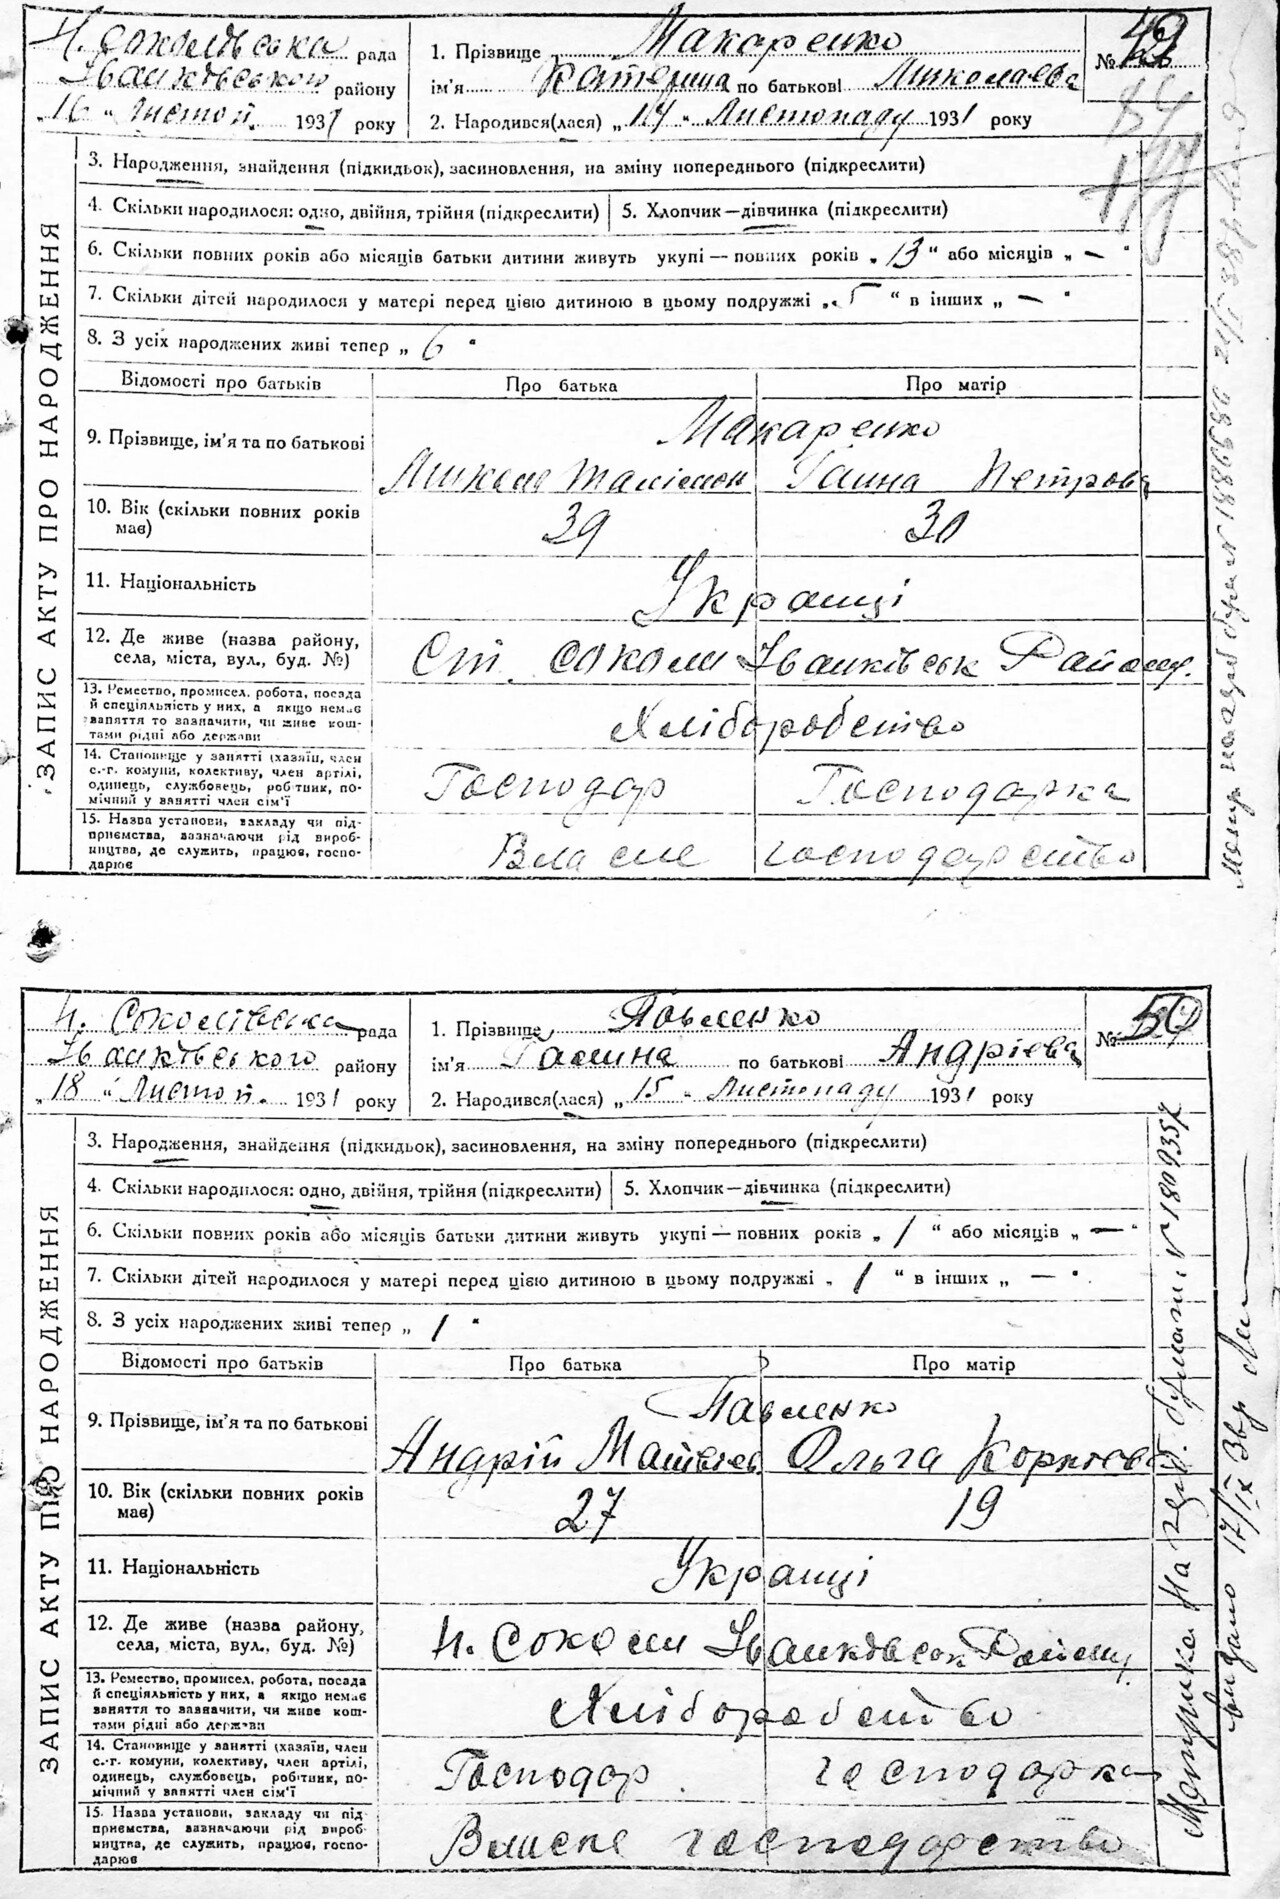 Н. Соколівська рада
Іванківського району
„16 " Листоп. 1931 року
1. Прізвище Макаренко
ім'я Катерина по батькові Миколаєва
2. Народився(лася) „ 14 " Листопаду 1931 року
№ 49
ЗАПИС АКТУ ПРО НАРОДЖЕННЯ
3. Народження, знайдення (підкидьок), засиновлення, на зміну попереднього (підкреслити)
4. Скільки народилося: одно, двійня, трійня (підкреслити) 5. Хлопчик—дівчинка (підкреслити)
6. Скільки повних років або місяців батьки дитини живуть укупі — повних років „ 13 " або місяців „ — "
7. Скільки дітей народилося у матері перед цією дитиною в цьому подружжі „ 5 " в інших „ — "
8. З усіх народжених живі тепер „ 6 "
Відомості про батьків Про батька Про матір
Макаренко
9. Прізвище, ім'я та по батькові
Микола Ганна Петрова
10. Вік (скільки повних років має) 39 30
11. Національність Українці
12. Де живе (назва району,
села, міста, вул., буд. №) Ст. Соколи Іванківськ Району.
13. Ремество, промисел, робота, посада
й спеціяльність у них, а якщо немає
заняття то зазначити, чи живе кош-
тами рідні або держави
Хліборобство
14. Становище у занятті (хазяїн, член
с.-г. комуни, колективу, член артілі,
одинець, службовець, робітник, по-
мічний у занятті член сім'ї
Господар Господарка
15. Назва установи, закладу чи під-
приємства, зазначаючи рід вироб-
ництва, де служить, працює, госпо-
дарює
Власне господарство
Н. Соколівська рада
Іванківського району
„18 " Листоп. 1931 року
1. Прізвище Павленко
ім'я Галина по батькові Андрієва
2. Народився(лася) „ 15 " Листопаду 1931 року
№ 50
ЗАПИС АКТУ ПРО НАРОДЖЕННЯ
3. Народження, знайдення (підкидьок), засиновлення, на зміну попереднього (підкреслити)
4. Скільки народилося: одно, двійня, трійня (підкреслити) 5. Хлопчик—дівчинка (підкреслити)
6. Скільки повних років або місяців батьки дитини живуть укупі — повних років „ 1 " або місяців „ — "
7. Скільки дітей народилося у матері перед цією дитиною в цьому подружжі „ 1 " в інших „ — "
8. З усіх народжених живі тепер „ 1 "
Відомості про батьків Про батька Про матір
Павленко
9. Прізвище, ім'я та по батькові
Андрій Матвієв. Ольга Корнієва
10. Вік (скільки повних років має) 27 19
11. Національність Українці
12. Де живе (назва району,
села, міста, вул., буд. №) Н. Соколи Іванківськ Району.
13. Ремество, промисел, робота, посада
й спеціяльність у них, а якщо немає
заняття то зазначити, чи живе кош-
тами рідні або держави
Хліборобство
14. Становище у занятті (хазяїн, член
с.-г. комуни, колективу, член артілі,
одинець, службовець, робітник, по-
мічний у занятті член сім'ї
Господар господарка
15. Назва установи, закладу чи під-
приємства, зазначаючи рід вироб-
ництва, де служить, працює, госпо-
дарює
Власне господарство
Метрика На герб. бумаги №
видано 17/IX 38р